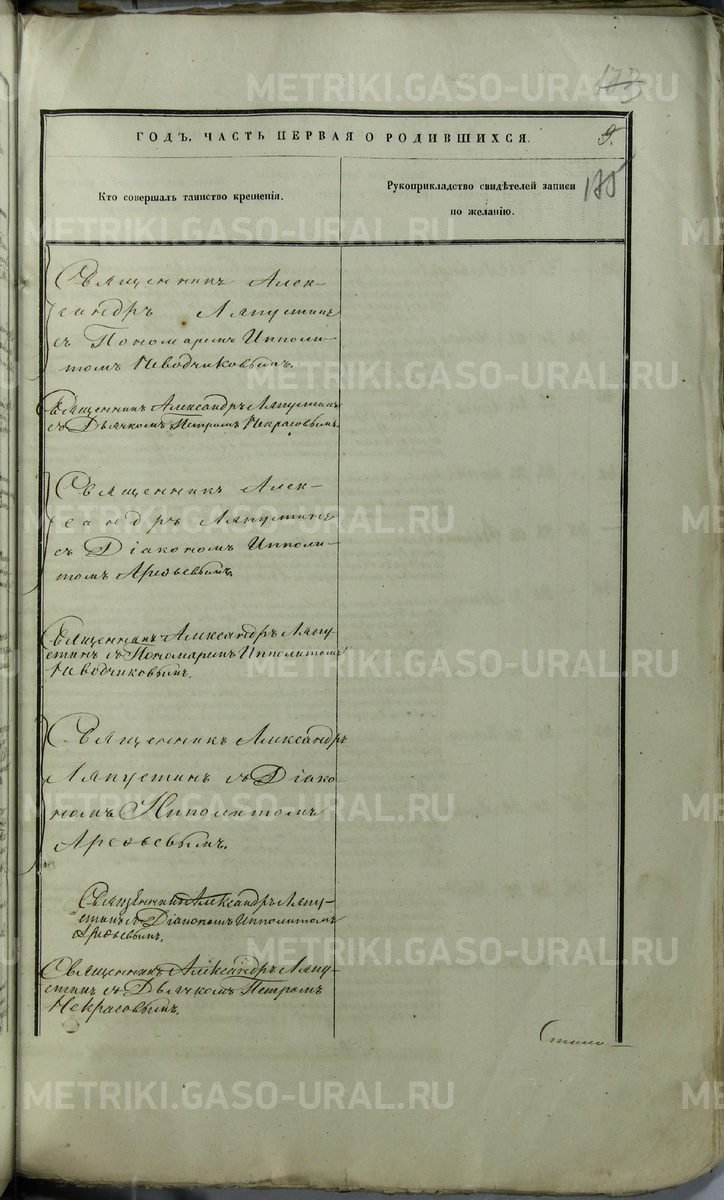 173
ГОДЪ, ЧАСТЬ ПЕРВАЯ О РОДИВШИХСЯ.
9.
185
Кто совершалъ таинство крещенія.
Рукоприкладство свидѣтелей записи
по желанію.
Священникъ Алек-
сандръ Ляпустинъ
съ Пономаремъ Ипполи-
томъ Неводчиковымъ.
Священникъ Александръ Ляпустинъ
съ Дьячкомъ Петромъ Некрасовымъ
Священникъ Алек-
сандръ Ляпустинъ
съ Діакономъ Ипполи-
томъ Арефьевымъ.
Священникъ Александръ Ляпу-
стинъ съ Пономаремъ Ипполитомъ
Неводчиковымъ.
Священникъ Александръ
Ляпустинъ съ Діако-
номъ Ипполитомъ
Арефьевымъ.
Священникъ Александръ Ляпу-
стинъ съ Діакономъ Ипполитомъ
Арефьевымъ.
Священникъ Александръ Ляпу-
стинъ съ Дьячкомъ Петромъ
Некрасовымъ.
METRIKI.GASO-URAL.RU